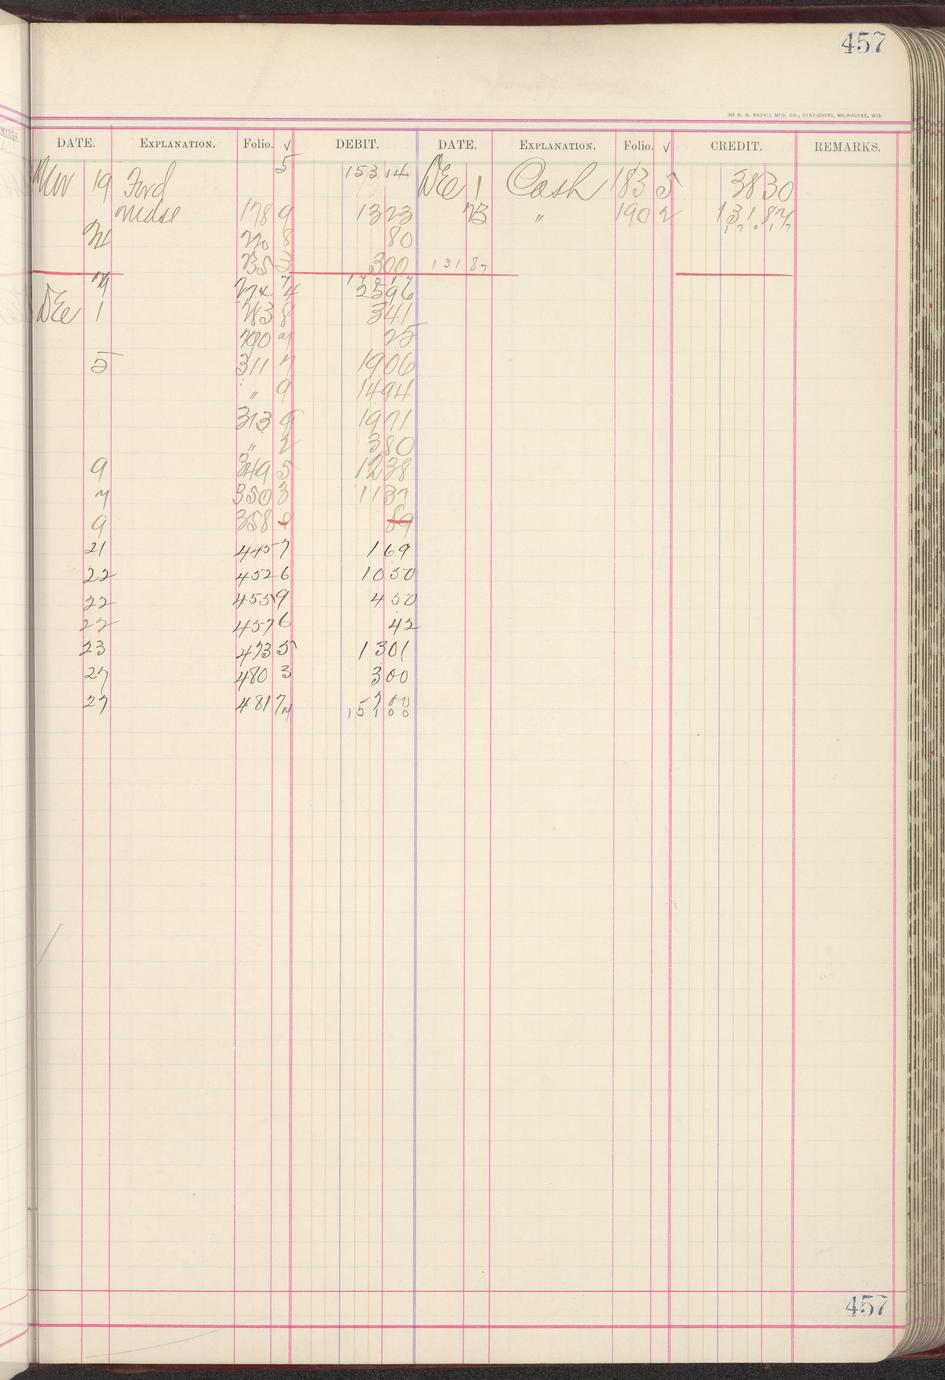 457
DATE. EXPLANATION. Folio. √ DEBIT. DATE. EXPLANATION. Folio. √ CREDIT. REMARKS.
19 Ford 5 153 14 Dec 1 Cash 183 5 38 30
Mdse 178 9 13 23 23 " 190 2 131 87
8 80
3 3 00 131 87
25 96
Dec 1 283 8 3 41
290 25
5 311 7 19 06
" 9 14 94
313 9 19 71
" 2 3 80
9 349 5 12 38
7 350 3 11 37
9 358 89
21 445 7 1 69
22 452 6 10 50
22 455 9 4 50
22 457 6 42
23 473 5 13 01
27 480 3 3 00
27 481 7 7 00
151 00
457